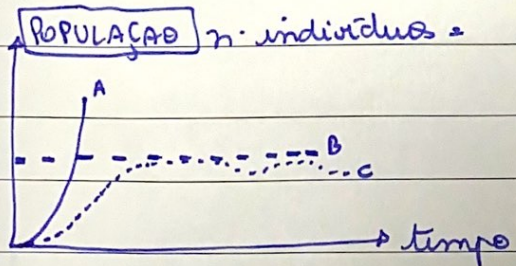 POPULAÇAO n. indivíduos =
A
B
C
tempo